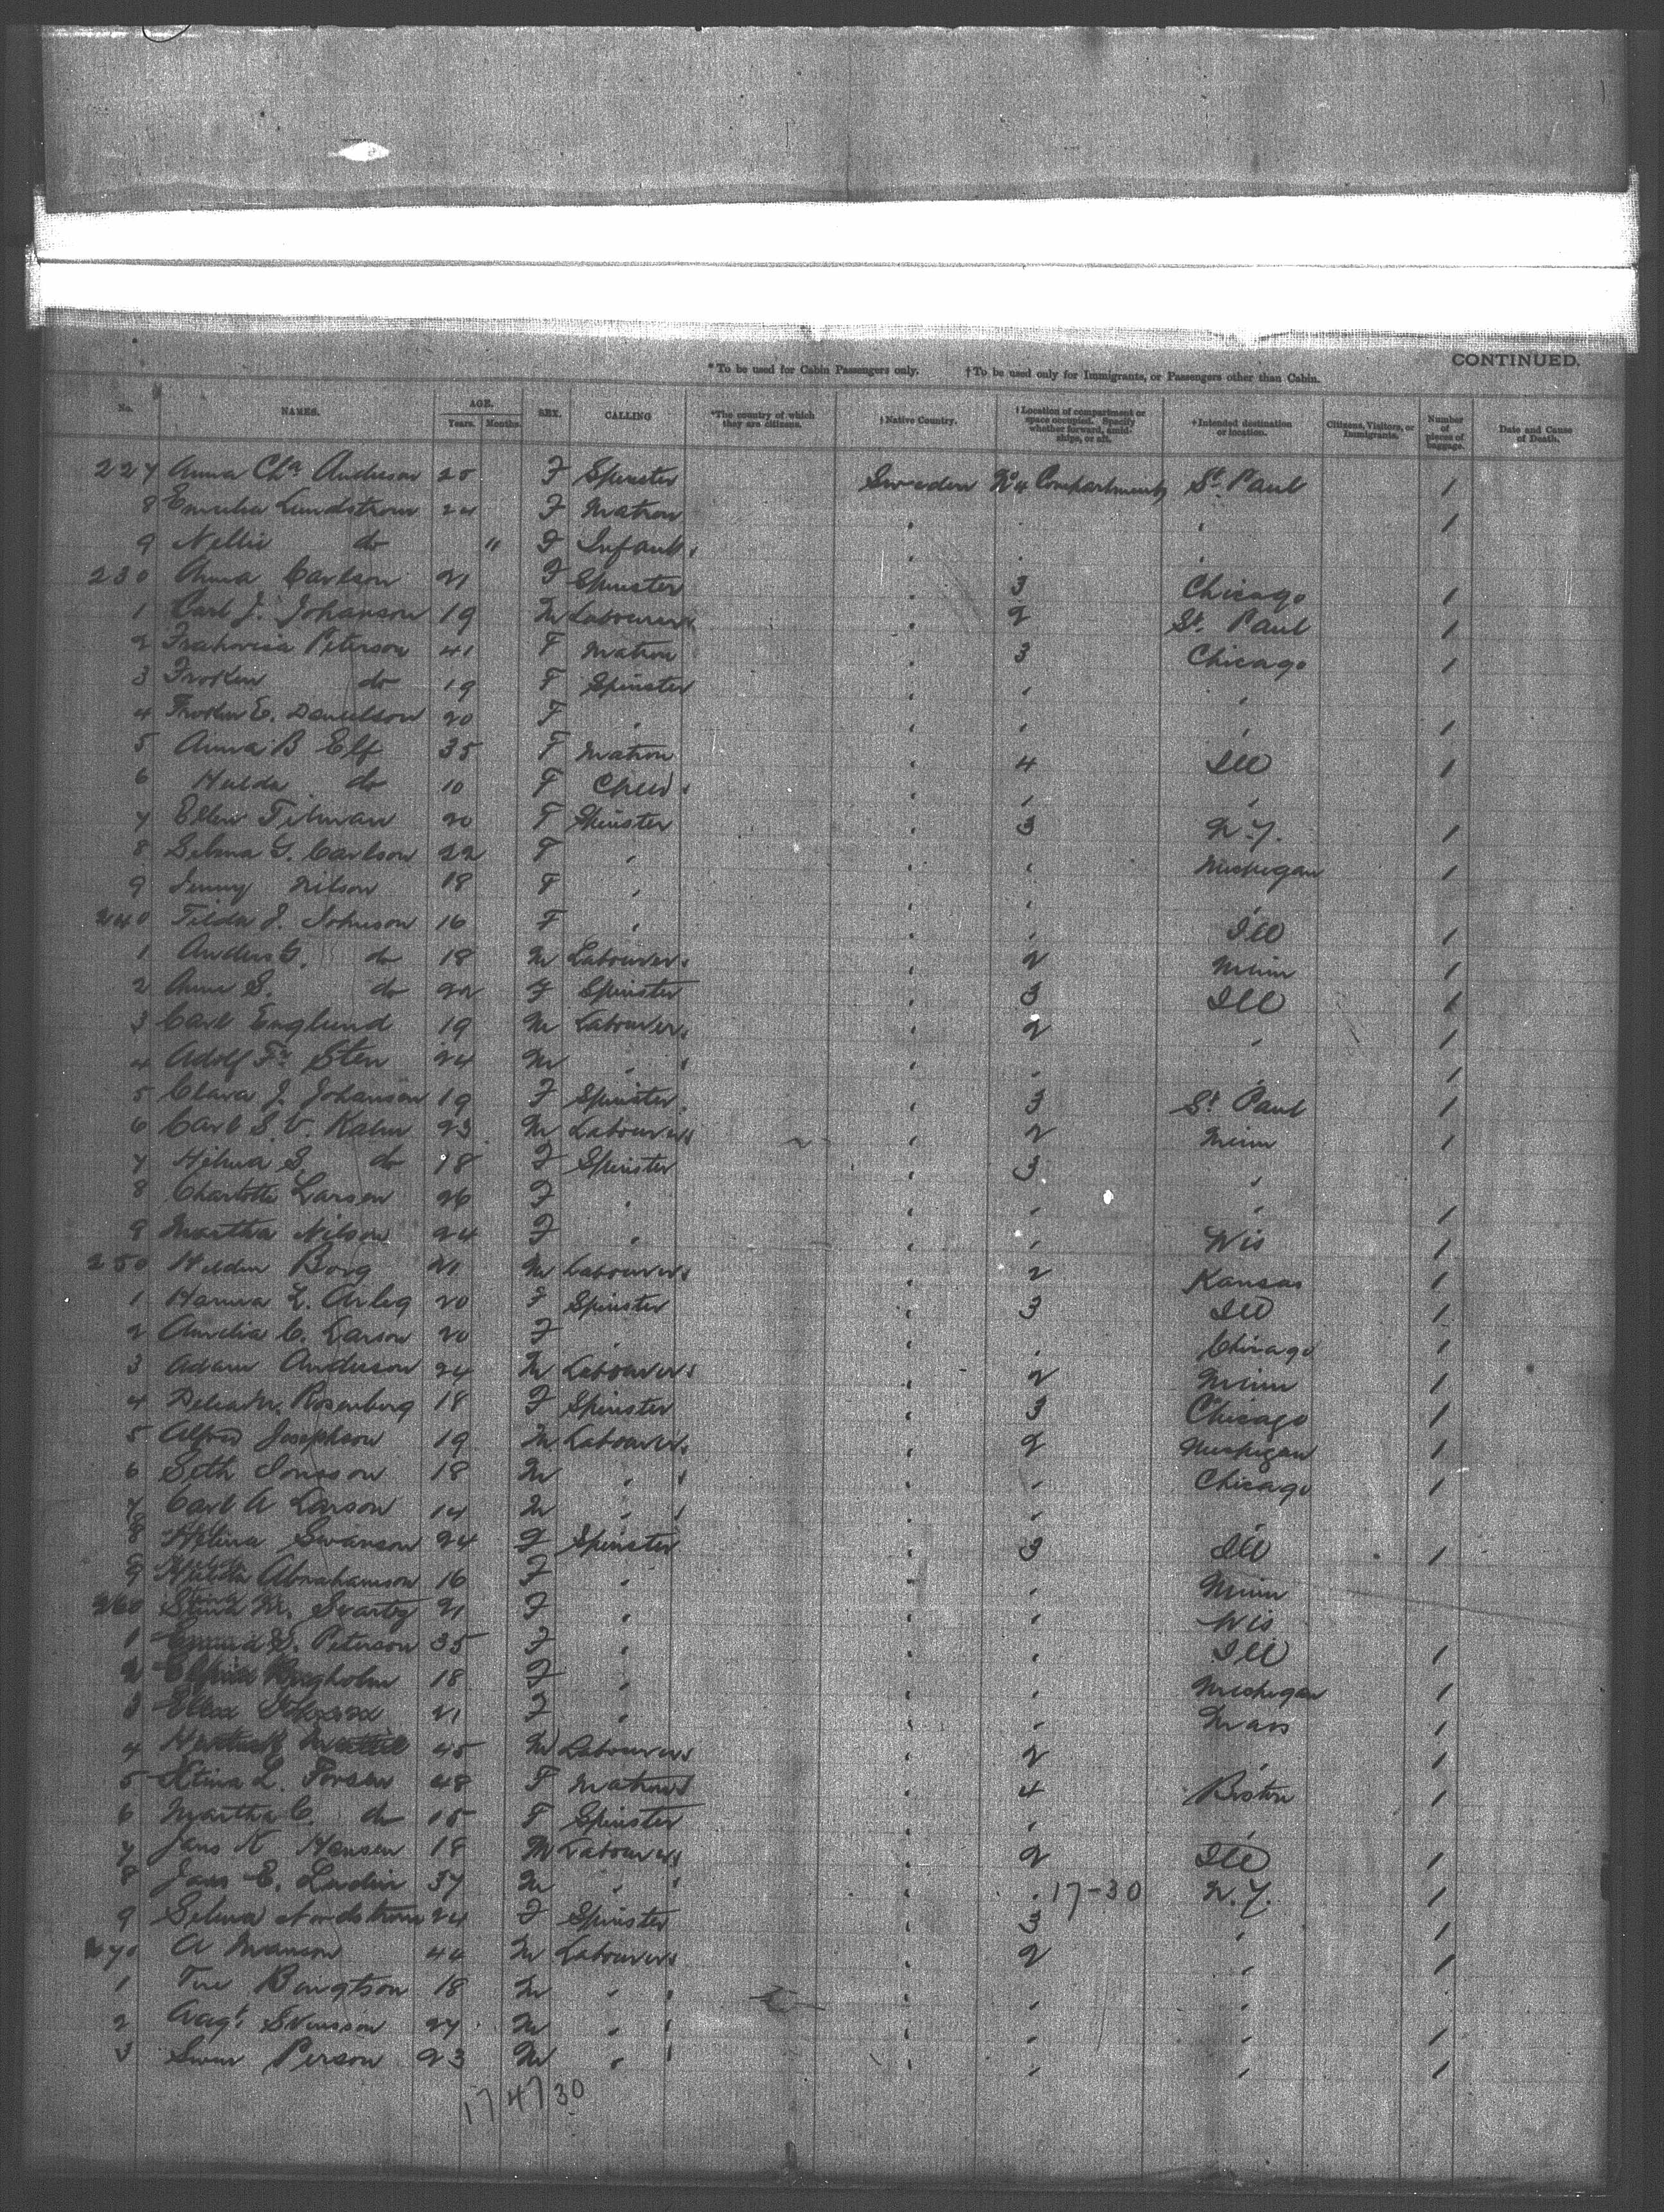 CONTINUED.
*To be used for Cabin Passengers only. †To be used only for Immigrants, or Passengers other than Cabin.
No. NAMES. AGE. Years. Months. SEX. CALLING *The country of which they are citizens. †Native Country. †Location of compartment or space occupied. Specify whether forward, amidships, or aft. †Intended destination or location. Citizens, Visitors, or Immigrants. Number of pieces of baggage. Date and Cause of Death.
227 Anna Cha Anderson 25 F Spinster Sweden No 4 Compartment St. Paul 1
8 Emelia Lundstrom 24 F Matron " " " 1
9 Nellie do " F Infant " " "
230 Anna Carlson 21 F Spinster " 3 Chicago 1
1 Carl J. Johanson 19 M Labourers " 2 St. Paul 1
2 Peterson 41 F Matron " 3 Chicago 1
3 Froken do 19 F Spinster " " "
4 Froken E. Danielson 20 F " " " " 1
5 Anna B Elf 35 F Matron " 4 Ill 1
6 Hulda do 10 F Child " " "
7 Ellen Tilman 20 F Spinster " 3 N.Y. 1
8 Selma G. Carlson 22 F " " " Michigan 1
9 Jenny Nilson 18 F " " " "
240 Tilda J. Johnson 16 F " " " Ill 1
1 Anders G. do 18 M Labourers " 2 Minn 1
2 Anna S. do 22 F Spinster " 3 Ill 1
3 Carl Englund 19 M Labourers " 2 " 1
4 Adolf Fr Sten 24 M " " " " 1
5 Clara J. Johanson 19 F Spinster " 3 St Paul 1
6 Carl S. V. Kalm 23 M Labourers " 2 Minn 1
7 Hilma S. do 18 F Spinster " 3 "
8 Charlotte Larsen 26 F " " " " 1
9 Martha Nilson 24 F " " " Wis 1
250 Borg 21 M Labourers " 2 Kansas 1
1 Hanna L. 20 F Spinster " 3 Ill 1
2 Amelia C. Larson 20 F " " " Chicago 1
3 Adam Anderson 24 M Labourers " 2 Minn 1
4 Rosenberg 18 F Spinster " 3 Chicago 1
5 Alfred Josephson 19 M Labourers " 2 Muskegan 1
6 Seth Jonsson 18 M " " " Chicago 1
7 Carl A Larson 14 M " " " "
8 Swanson 24 F Spinster " 3 Ill 1
9 Hulda Abrahamson 16 F " " " Minn
260 M. 21 F " " " Wis
1 Peterson 35 F " " " Ill 1
2 18 F " " " Michigan 1
3 21 F " " " Mass 1
4 45 M Labourers " 2 " 1
5 Stina L. Forsen 48 F Matrons " 4 Boston 1
6 Martha C. do 15 F Spinster " " "
7 Jans N Hansen 18 M Labourers " 2 Ill 1
8 Jans E. Ludin 37 M " " " 17-30 N.Y. 1
9 Selma Nordstrom 24 F Spinster " 3 " 1
270 A Manson 44 M Labourers " 2 " 1
1 Bengtson 18 M " " " "
2 Aagt Svensson 27 M " " " " 1
3 Swen Person 23 M " " " " 1
17 47 30